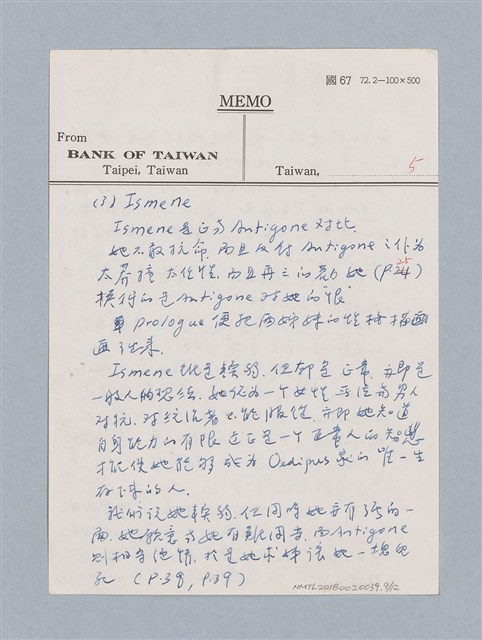 國 67 72.2—100×500
MEMO
From
BANK OF TAIWAN
Taipei, Taiwan
Taiwan,
5
(3) Ismene
Ismene是正为Antigone对比.
她不敢抗命,而且反对Antigone之作为
太莽撞 太任性,而且再三的劝她 (P.25)
换得的是Antigone对她的"恨"
prologue便把两姊妹的性格描画
画出来.
Ismene虽是软弱,但却是正常,亦即是
一般人的观念,她认为一个女性无法与男人
对抗,对统治者只能服从,亦即她知道
自身能力的有限 这正是一个正常人的知慧
才能使她能够成为Oedipus家的唯一生
存下来的人.
我们说她软弱,但同时她亦有强的一
面,她愿意与她有难同当,而Antigone
则相当绝情,於是她求姊让她一块兒
死 (P.38, P.39)
NMTL20180020039.9/12